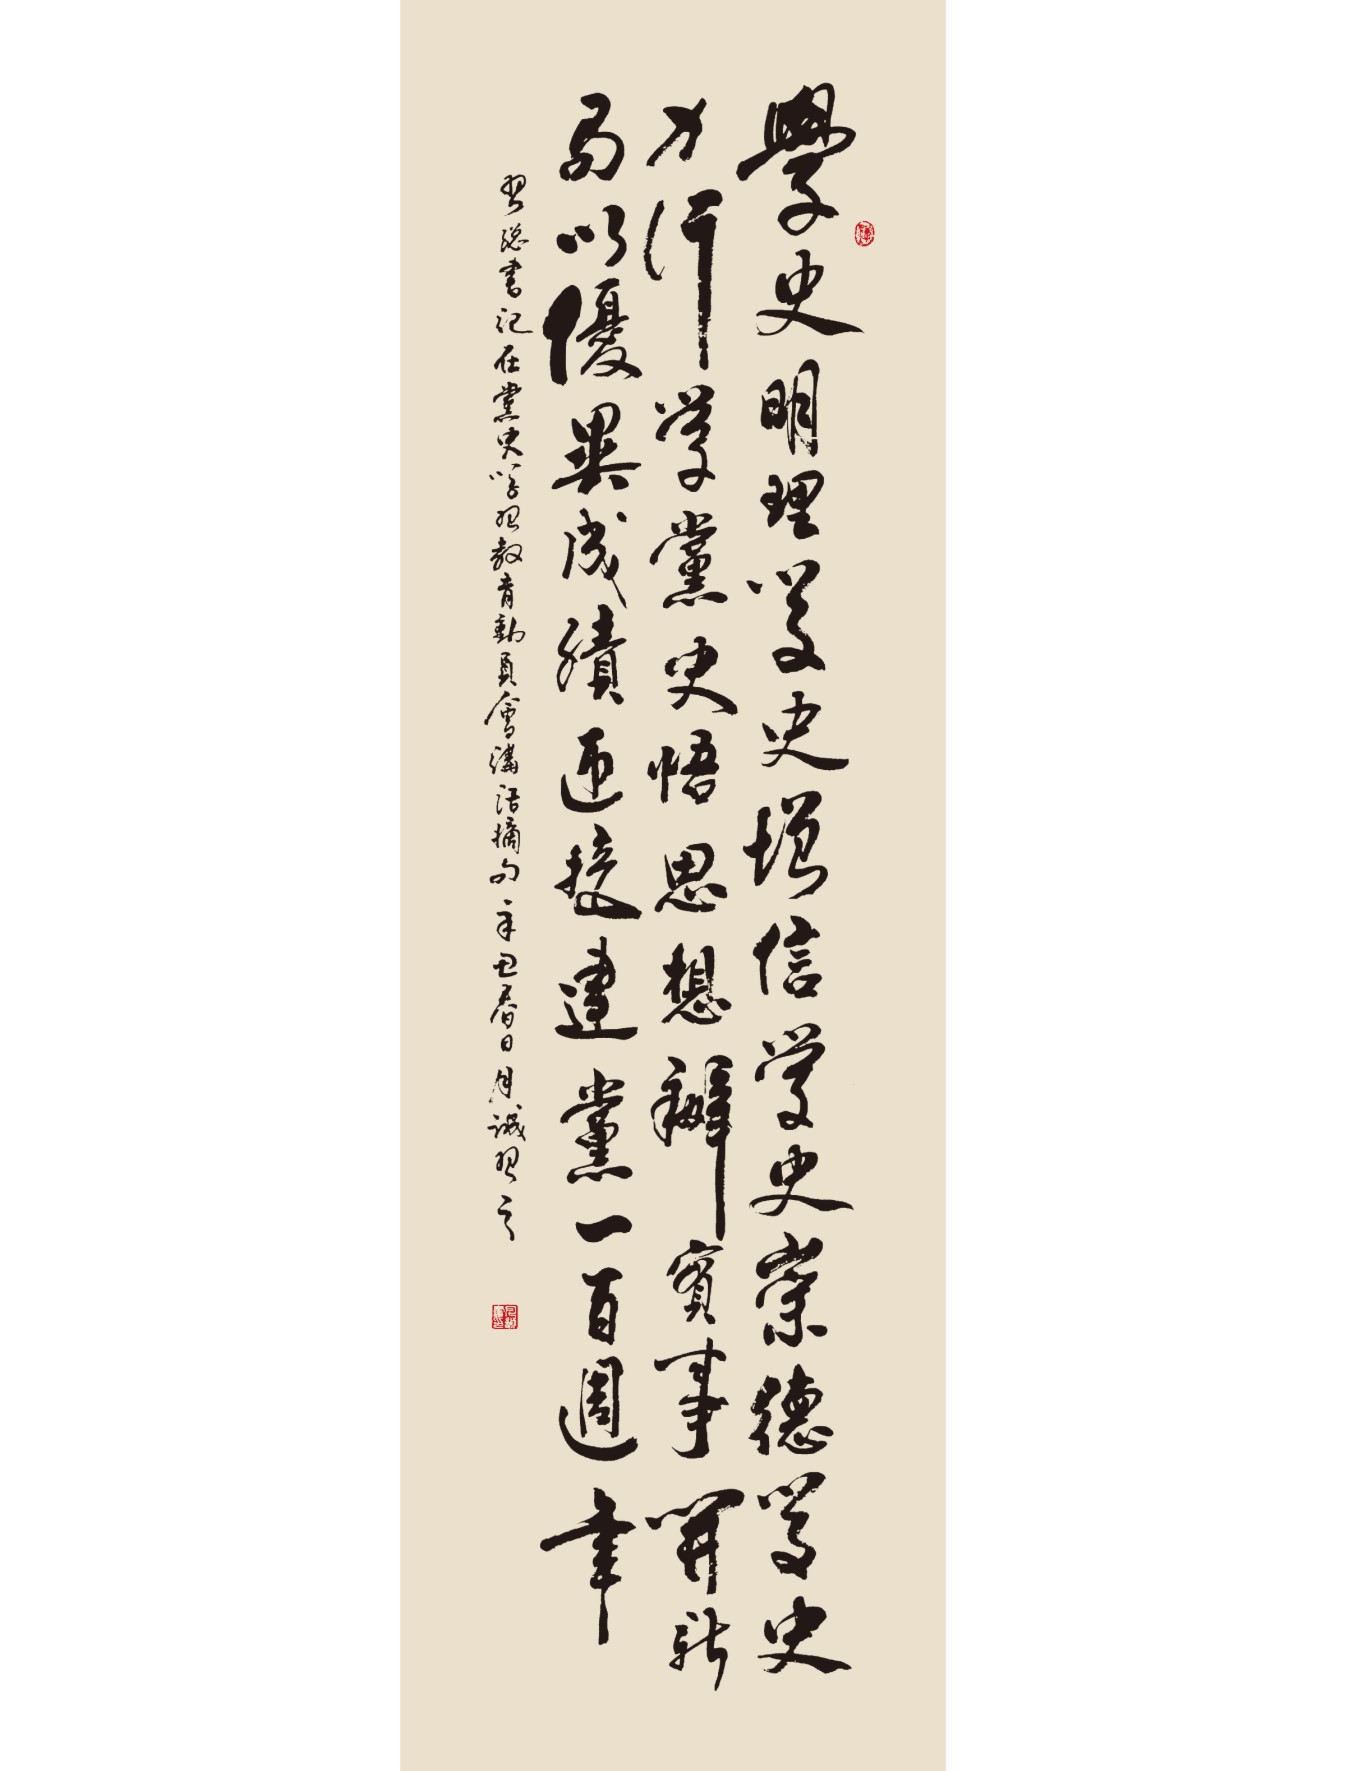 學史明理學史增信學史崇德學史
力行學黨史悟思想辦實事開新
局以優異成績迎接建黨一百週年
習總書記在黨史學習教育動員會講話摘句辛丑春日月誠習之